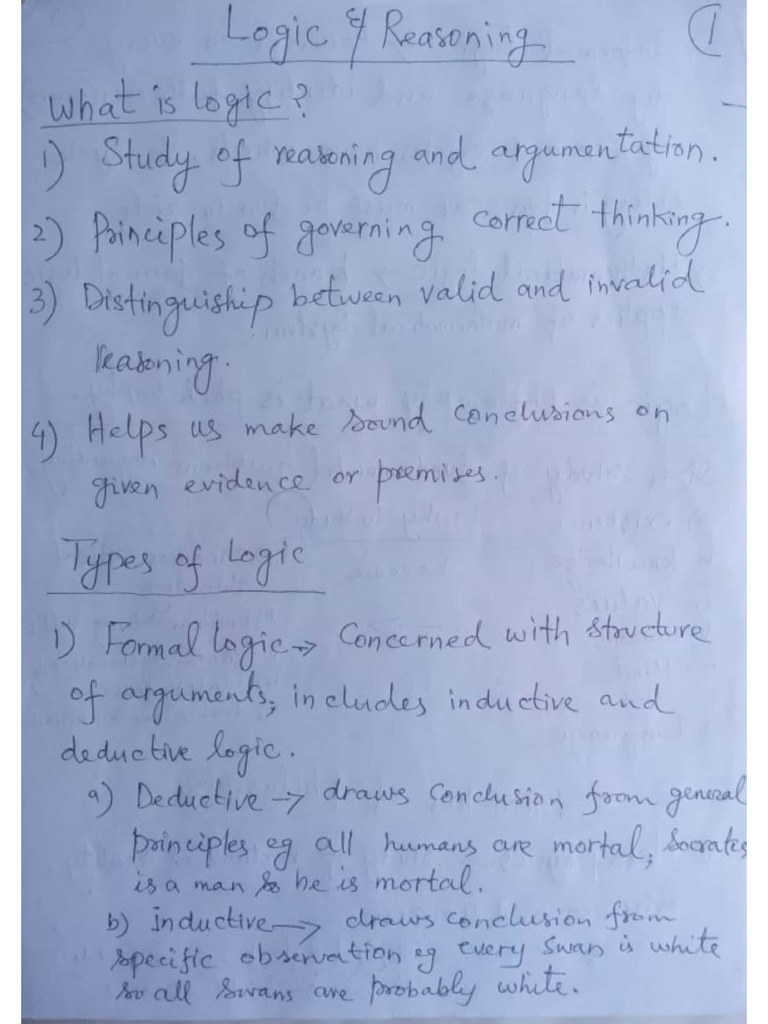 Logic & Reasoning
1
What is logic?
1) Study of reasoning and argumentation.
2) Principles of governing correct thinking.
3) Distinguiship between valid and invalid
reasoning.
4) Helps us make sound conclusions on
given evidence or premises.
Types of Logic
1) Formal logic → Concerned with structure
of arguments, includes inductive and
deductive logic.
a) Deductive → draws conclusion from general
principles eg all humans are mortal, Socrates
is a man so he is mortal.
b) Inductive → draws conclusion from
specific observation eg every swan is white
so all swans are probably white.